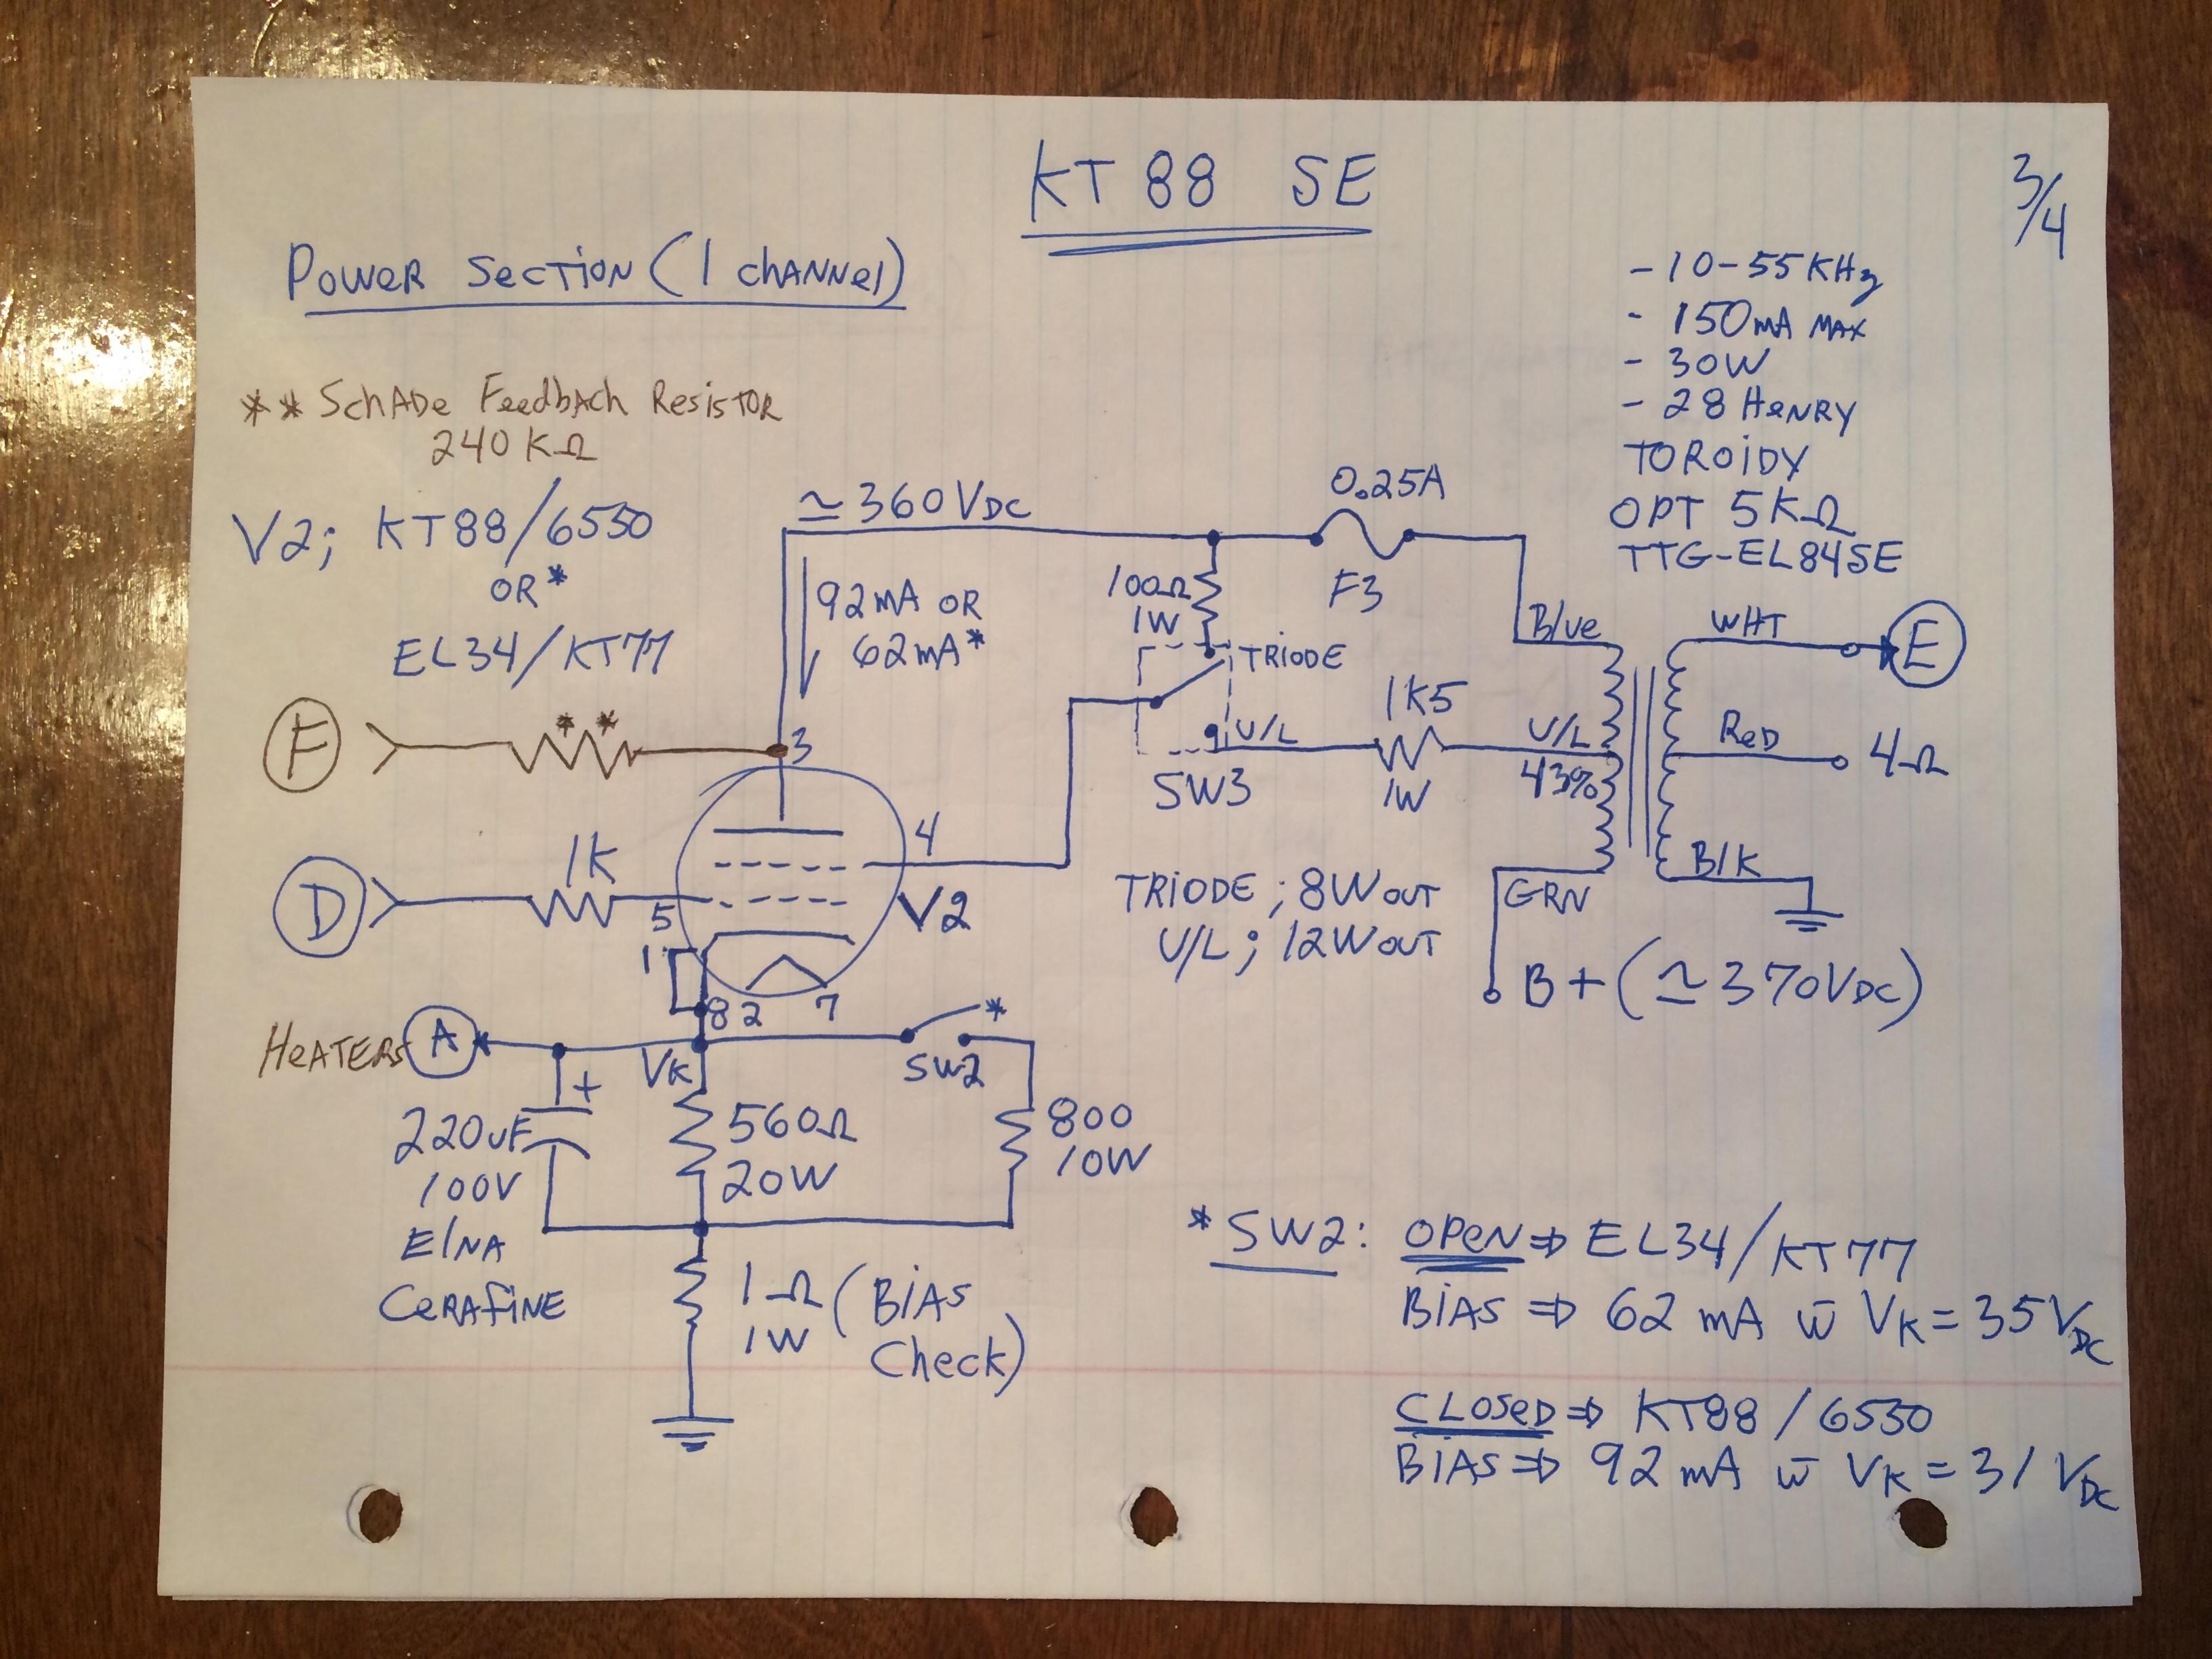 KT88 SE
3/4
Power Section (1 channel)
- 10-55KHz
- 150mA MAX
- 30W
- 28 Henry
TOROIDY
OPT 5KΩ
TTG-EL84SE
** Schade Feedbach Resistor
240KΩ
V2; KT88/6550
OR*
EL34/KT77
≃360VDC
92mA OR
62mA*
0.25A
F3
100Ω
1W
TRIODE
U/L
SW3
1K5
1W
Blue
U/L
43%
GRN
B+ (≃370VDC)
WHT
E
Red
4Ω
Blk
F
**
3
D
1K
5
4
V2
1
8 2 7
TRIODE; 8W OUT
U/L; 12W OUT
Heaters A
VK
SW2
*
+
220uF
100V
Elna
Cerafine
560Ω
20W
800
10W
1Ω (Bias
1W Check)
*SW2: OPEN ⇒ EL34/KT77
BIAS ⇒ 62 mA w̄ VK = 35VDC
CLOSED ⇒ KT88/6550
BIAS ⇒ 92 mA w̄ VK = 31 VDC